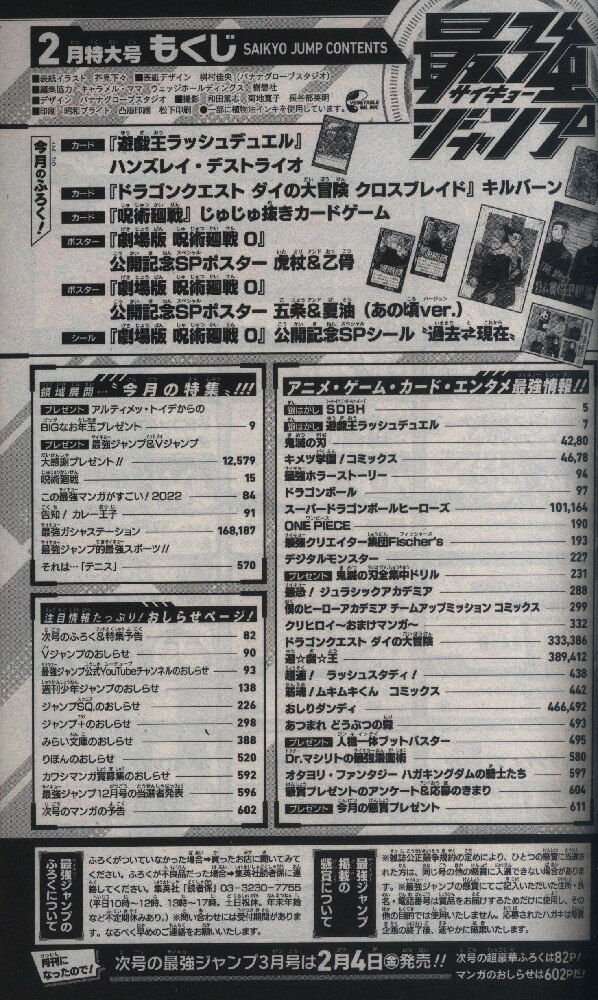 2月特大号 もくじ SAIKYO JUMP CONTENTS
最強ジャンプ
サイキョー
■表紙イラスト 芥見下々 ■表紙デザイン 桝村佳央（バナナグローブスタジオ）
■編集協力 キャラメル・ママ ウェッジホールディングス 樹想社
■デザイン バナナグローブスタジオ ■撮影 和田篤志 菊地寛子 長谷部英明
■印刷 昭和ブライト 凸版印刷 松下印刷 ●一部に植物油インキを使用しています。
今月のふろく！
カード 『遊戯王ラッシュデュエル』
ハンズレイ・デストライオ
カード 『ドラゴンクエスト ダイの大冒険 クロスブレイド』キルバーン
カード 『呪術廻戦』じゅじゅ抜きカードゲーム
ポスター 『劇場版 呪術廻戦 0』
公開記念SPポスター 虎杖&乙骨
ポスター 『劇場版 呪術廻戦 0』
公開記念SPポスター 五条&夏油（あの頃ver.）
シール 『劇場版 呪術廻戦 0』公開記念SPシール〝過去⇄現在〟
領域展開…〝今月の特集〟!!!
プレゼント アルティメット・トイデからの
BIGなお年玉プレゼント 9
プレゼント 最強ジャンプ&Vジャンプ
大感謝プレゼント!! 12,579
呪術廻戦 15
この最強マンガがすごい！2022 84
告知！ カレー王子 91
最強ガシャステーション 168,187
最強ジャンプ的最強スポーツ!!
それは…「テニス」 570
注目情報たっぷり！おしらせページ！
次号のふろく&特集予告 82
Vジャンプのおしらせ 90
最強ジャンプ公式YouTubeチャンネルのおしらせ 93
週刊少年ジャンプのおしらせ 138
ジャンプSQ.のおしらせ 226
ジャンプ+のおしらせ 298
みらい文庫のおしらせ 388
りぼんのおしらせ 520
カワシマンガ賞募集のおしらせ 592
最強ジャンプ12月号の当選者発表 596
次号のマンガの予告 602
アニメ・ゲーム・カード・エンタメ最強情報!!
銀はがし SDBH 5
銀はがし 遊戯王ラッシュデュエル 7
鬼滅の刃 42,80
キメツ学園！コミックス 46,78
最強ホラーストーリー 94
ドラゴンボール 97
スーパードラゴンボールヒーローズ 101,164
ONE PIECE 190
最強クリエイター集団Fischer's 193
デジタルモンスター 227
プレゼント 鬼滅の刃全集中ドリル 231
最恐！ジュラシックアカデミア 288
僕のヒーローアカデミア チームアップミッション コミックス 299
クリヒロイ〜おまけマンガ〜 332
ドラゴンクエスト ダイの大冒険 333,386
遊☆戯☆王 389,412
超速！ ラッシュスタディ！ 438
筋魂！ムキムキくん コミックス 442
おしりダンディ 466,492
あつまれ どうぶつの森 493
プレゼント 人機一体フットバスター 495
Dr.マシリトの最強漫画術 580
オタヨリ・ファンタジー ハガキングダムの騎士たち 597
懸賞プレゼントのアンケート&応募のきまり 604
プレゼント 今月の懸賞プレゼント 611
最強ジャンプのふろくについて
ふろくがついていなかった場合➡買ったお店に聞いてみて
ください。ふろくが不良品だった場合➡集英社読者係に連
絡してください。集英社「読者係」03-3230-7755
（平日10時〜12時、13時〜17時。土日祝休。年末年始
など不定期休みあり。）※問い合わせには受付期間がありま
す。なるべく早めのご連絡をお願いいたします。
最強ジャンプ掲載の懸賞について
※雑誌公正競争規約の定めにより、ひとつの懸賞に当選さ
れた方は、同じ号の他の懸賞に入選できない場合がありま
す。※最強ジャンプの懸賞にてご記入いただいた住所・氏
名・電話番号は賞品をお届けするためだけに使用し、その
他の目的では使用いたしません。応募されたハガキは懸賞
企画の終了後、速やかに廃棄いたします。
月刊になったので！
次号の最強ジャンプ3月号は2月4日㊎発売!!
次号の超豪華ふろくは82P!
マンガのおしらせは602Pだ!